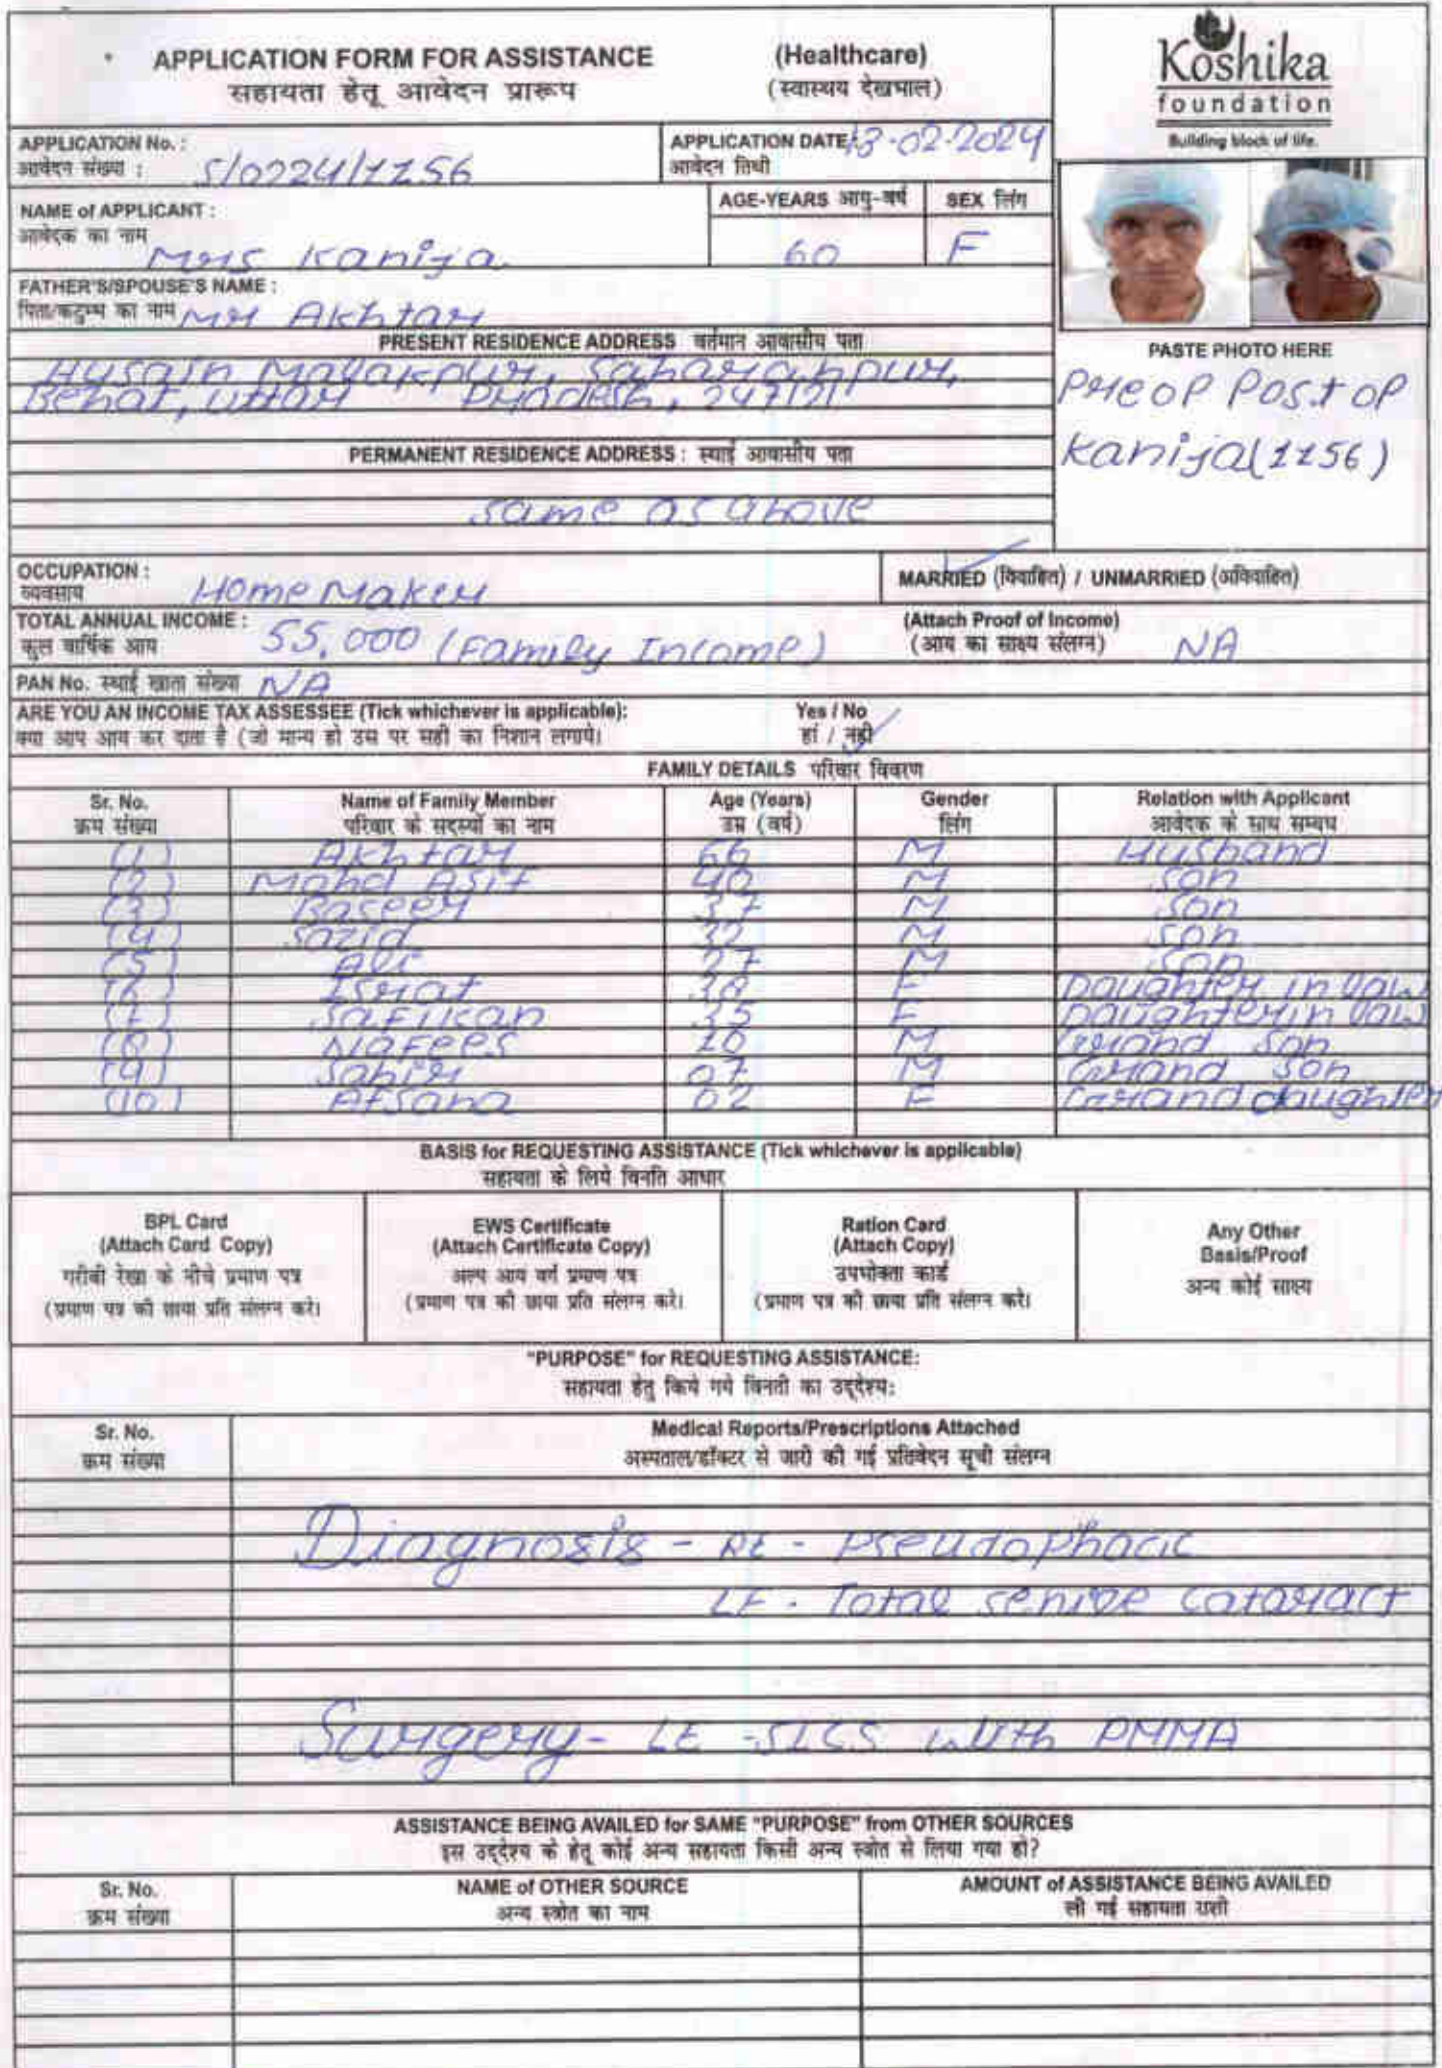 APPLICATION FORM FOR ASSISTANCE (Healthcare)
सहायता हेतू आवेदन प्रारूप (स्वास्थय देखभाल)
Koshika
foundation
Building block of life.
APPLICATION No. : S/0224/1156
आवेदन संख्या :
APPLICATION DATE: 13-02-2024
आवेदन तिथी
NAME of APPLICANT :
आवेदक का नाम Mrs Kanija
AGE-YEARS आयु-वर्ष 60
SEX लिंग F
FATHER'S/SPOUSE'S NAME :
पिता/कटुम्भ का नाम Mr Akhtar
PRESENT RESIDENCE ADDRESS वर्तमान आवासीय पता
Husain Malakpur, Saharanpur,
Behat, Uttar Pradesh, 247121
PASTE PHOTO HERE
Preop Postop
Kanija(1156)
PERMANENT RESIDENCE ADDRESS : स्थाई आवासीय पता
same as above
OCCUPATION :
व्यवसाय Home Maker
MARRIED (विवाहित) / UNMARRIED (अविवाहित)
TOTAL ANNUAL INCOME :
कुल वार्षिक आय 55,000 (Family Income)
(Attach Proof of Income)
(आय का साक्ष्य संलग्न) NA
PAN No. स्थाई खाता संख्या NA
ARE YOU AN INCOME TAX ASSESSEE (Tick whichever is applicable): Yes / No
क्या आप आय कर दाता है (जो मान्य हो उस पर सही का निशान लगाये। हां / नही
FAMILY DETAILS परिवार विवरण
Sr. No. Name of Family Member Age (Years) Gender Relation with Applicant
क्रम संख्या परिवार के सदस्यों का नाम उम्र (वर्ष) लिंग आवेदक के साथ सम्बध
(1) Akhtar 66 M Husband
(2) Mohd Asif 40 M Son
(3) Baseer 37 M Son
(4) Sazid 32 M Son
(5) Ali 27 M Son
(6) Israt 38 F Daughter in law
(7) Safikan 35 F Daughter in law
(8) Nafees 10 M Grand Son
(9) Sahir 07 M Grand Son
(10) Afsana 02 F Grand daughter
BASIS for REQUESTING ASSISTANCE (Tick whichever is applicable)
सहायता के लिये विनति आधार
BPL Card
(Attach Card Copy)
गरीबी रेखा के नीचे प्रमाण पत्र
(प्रमाण पत्र की छाया प्रति संलग्न करे।
EWS Certificate
(Attach Certificate Copy)
अल्प आय वर्ग प्रमाण पत्र
(प्रमाण पत्र की छाया प्रति संलग्न करे।
Ration Card
(Attach Copy)
उपभोक्ता कार्ड
(प्रमाण पत्र की छाया प्रति संलग्न करे।
Any Other
Basis/Proof
अन्य कोई साक्ष्य
"PURPOSE" for REQUESTING ASSISTANCE:
सहायता हेतु किये गये विनती का उद्देश्य:
Sr. No. Medical Reports/Prescriptions Attached
क्रम संख्या अस्पताल/डॉक्टर से जारी की गई प्रतिवेदन सूची संलग्न
Diagnosis - RE - Pseudophacic
LE - Total senile cataract
Surgery - LE - SICS with PMMA
ASSISTANCE BEING AVAILED for SAME "PURPOSE" from OTHER SOURCES
इस उद्देश्य के हेतू कोई अन्य सहायता किसी अन्य स्त्रोत से लिया गया हो?
Sr. No. NAME of OTHER SOURCE AMOUNT of ASSISTANCE BEING AVAILED
क्रम संख्या अन्य स्त्रोत का नाम ली गई सहायता राशी